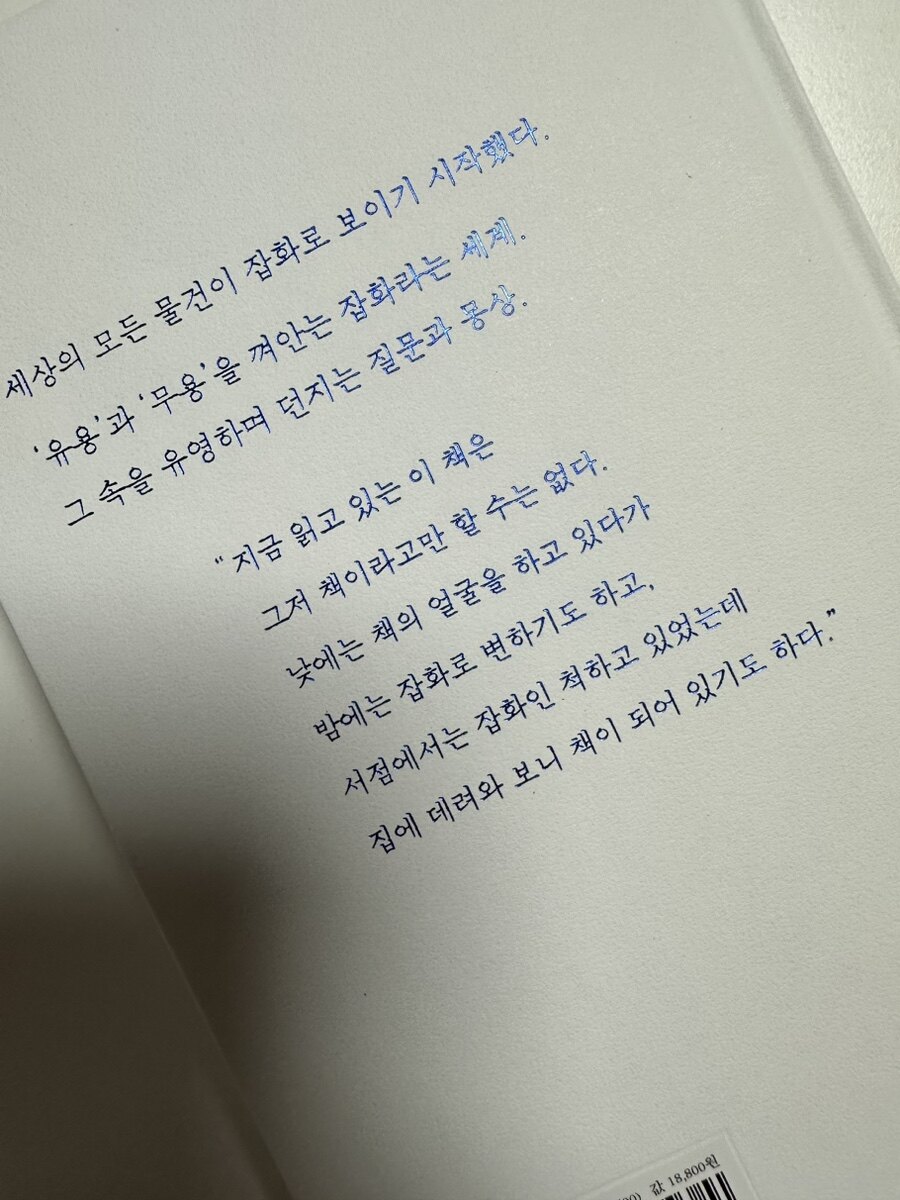 세상의 모든 물건이 잡화로 보이기 시작했다.
‘유용’과 ‘무용’을 껴안는 잡화라는 세계.
그 속을 유영하며 던지는 질문과 몽상.
“지금 읽고 있는 이 책은
그저 책이라고만 할 수는 없다.
낮에는 책의 얼굴을 하고 있다가
밤에는 잡화로 변하기도 하고,
서점에서는 잡화인 척하고 있었는데
집에 데려와 보니 책이 되어 있기도 하다.”
값 18,800원